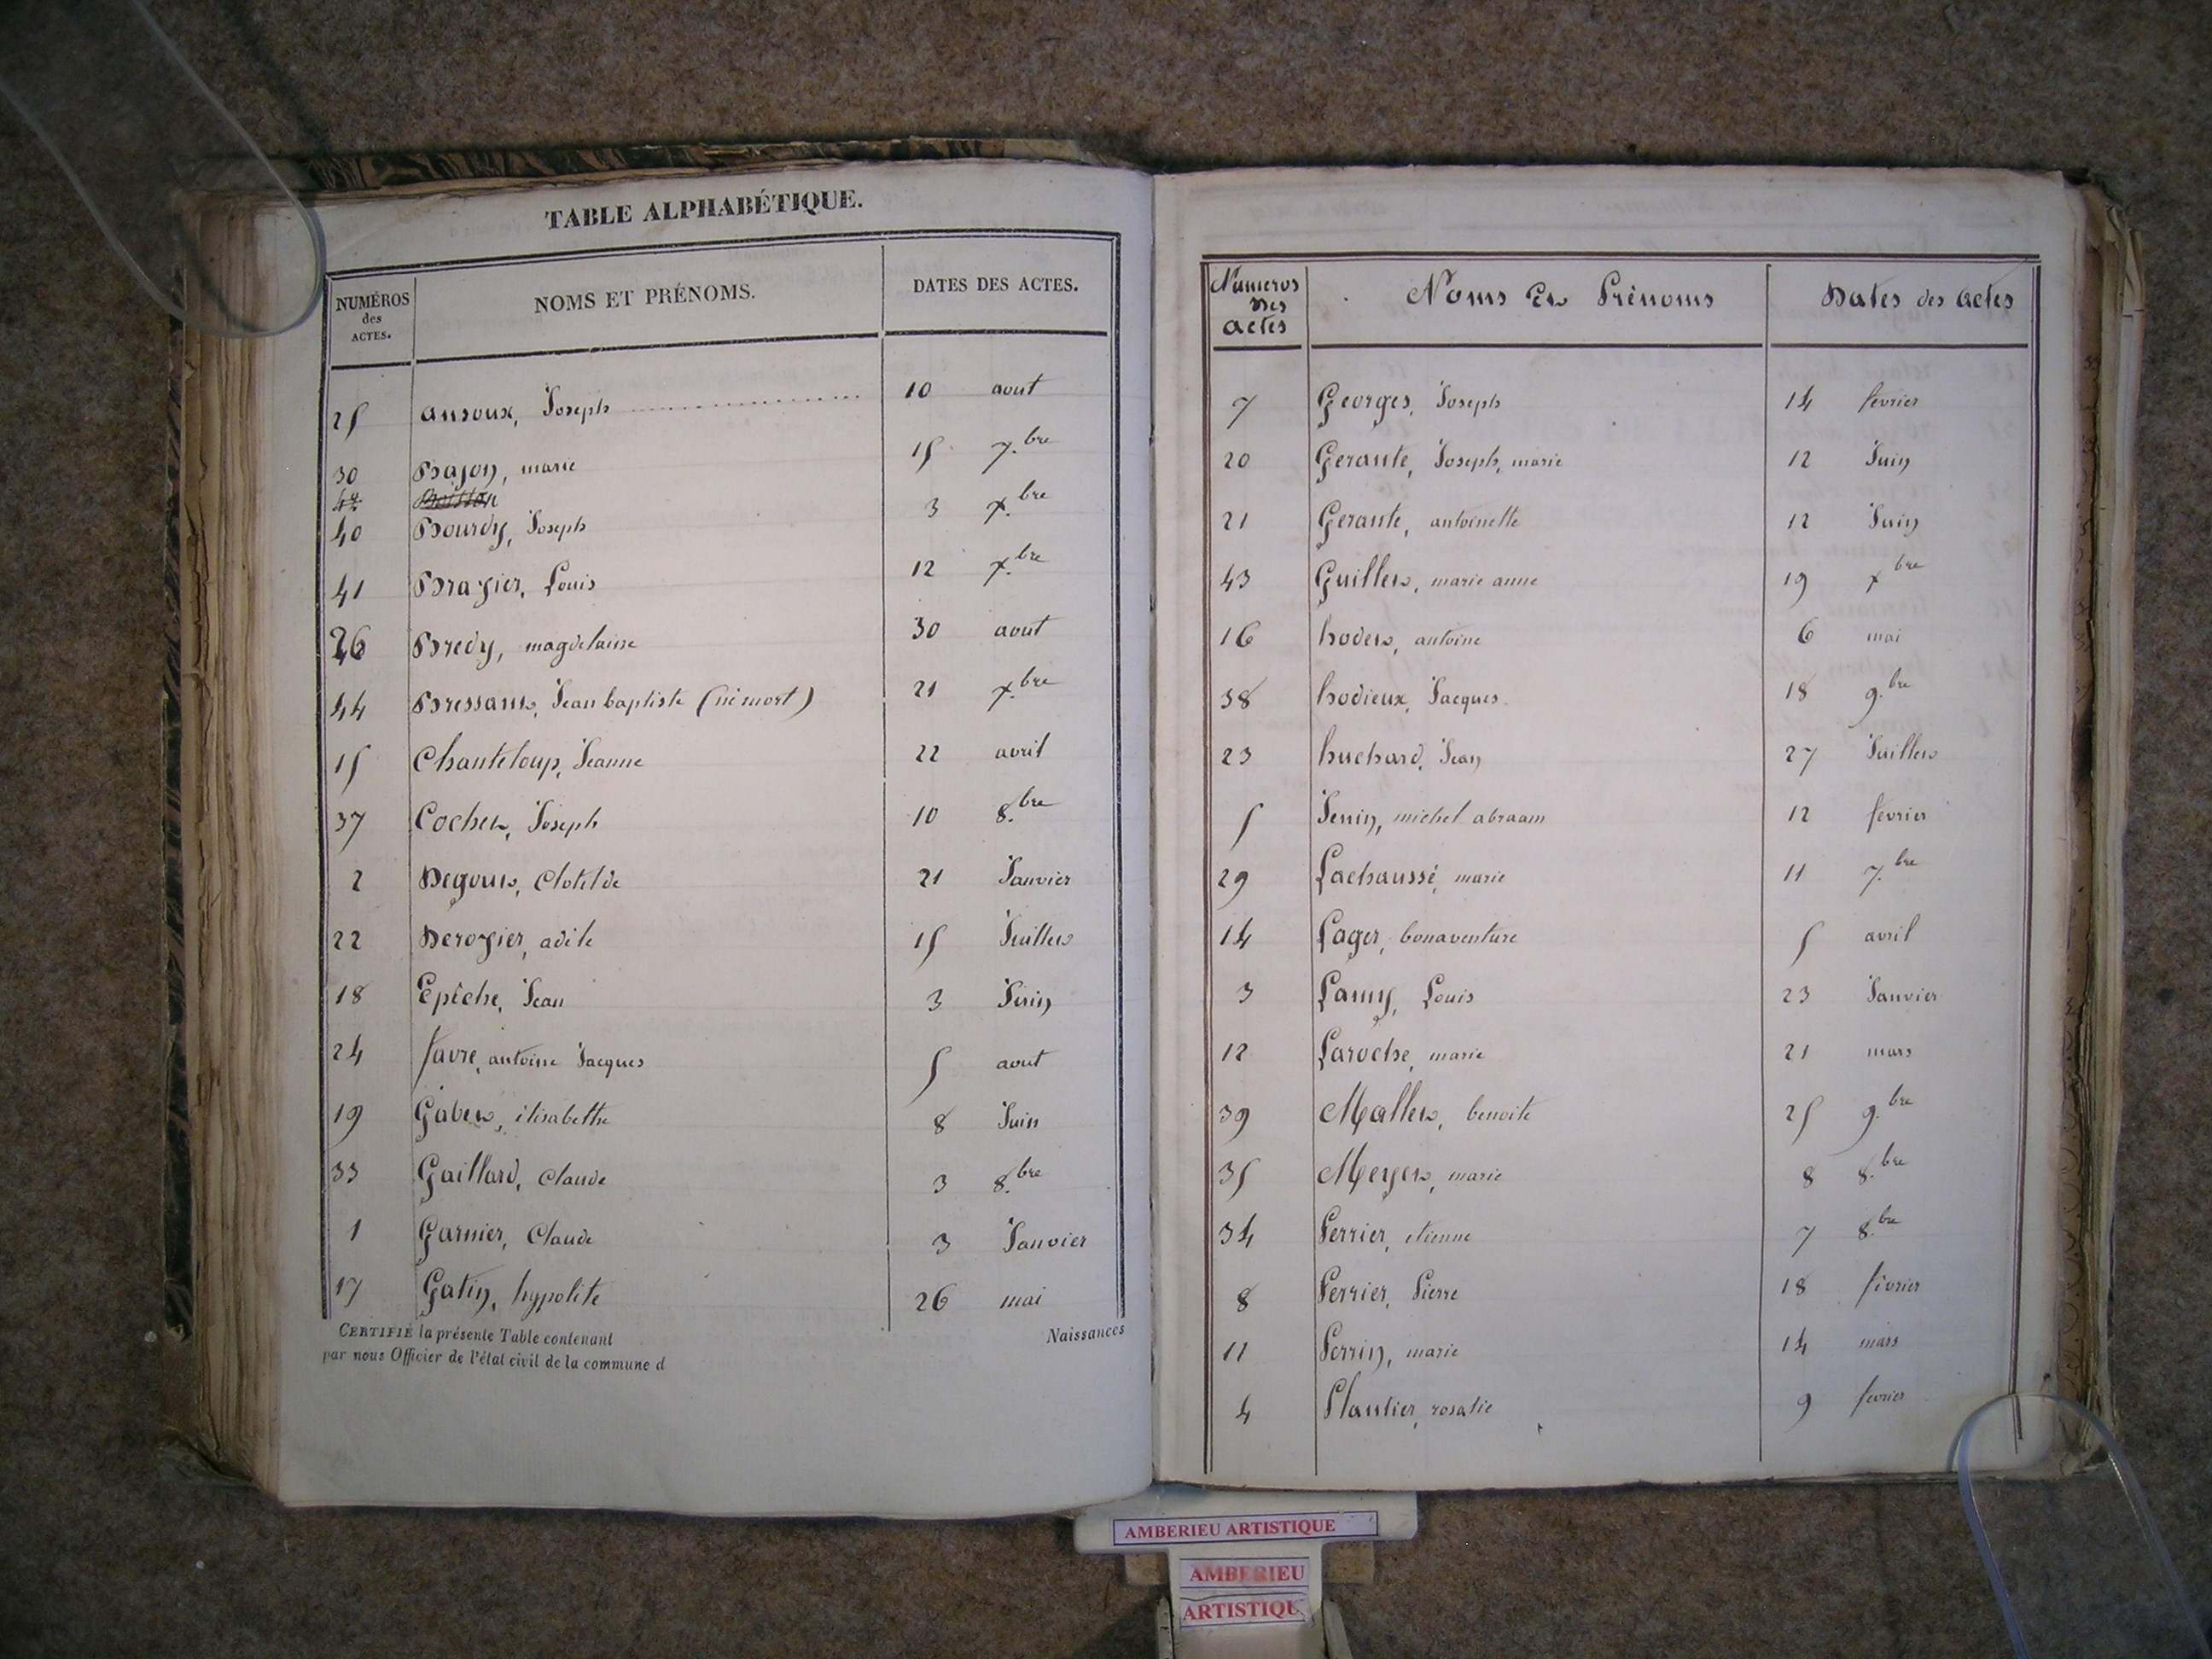 TABLE ALPHABÉTIQUE.
NUMÉROS des ACTES. NOMS ET PRÉNOMS. DATES DES ACTES.
25 ansoux, Joseph 10 aout
30 Bajon, marie 15 7.bre
Boisson
40 Bourdy, Joseph 3 x.bre
41 Brazier, Louis 12 x.bre
26 Bredy, magdelaine 30 aout
44 Bressant, Jean baptiste (né mort) 21 x.bre
15 Chanteloup, Jeanne 22 avril
37 Cochet, Joseph 10 8.bre
2 Degout, Clotilde 21 Janvier
22 Derozier, adèle 15 Juillet
18 Epèche, Jean 3 Juin
24 favre, antoine Jacques 5 aout
19 Gabet, élisabethe 8 Juin
33 Gaillard, Claude 3 8.bre
1 Garnier, Claude 3 Janvier
17 Gatin, hypolite 26 mai
CERTIFIÉ la présente Table contenant Naissances
par nous Officier de l'état civil de la commune d
Numeros Des actes Noms Et Prénoms Dates des actes
7 Georges, Joseph 14 fevrier
20 Gerante, Joseph, marie 12 Juin
21 Gerante, antoinette 12 Juin
43 Guillet, marie anne 19 x bre
16 hodet, antoine 6 mai
38 hodieux, Jacques 18 9.bre
23 huchard, Jean 27 Juillet
5 Jenin, michel abraam 12 fevrier
29 Lachaussé, marie 11 7.bre
14 Lager, bonaventure 5 avril
3 Lamy, Louis 23 Janvier
12 Laroche, marie 21 mars
39 Mallet, benoite 25 9.bre
35 Meyet, marie 8 8.bre
34 Perrier, etienne 7 8.bre
8 Perrier, Pierre 18 fevrier
11 Perrin, marie 14 mars
4 Plantier, rosalie 9 fevrier
AMBERIEU ARTISTIQUE
AMBERIEU
ARTISTIQU